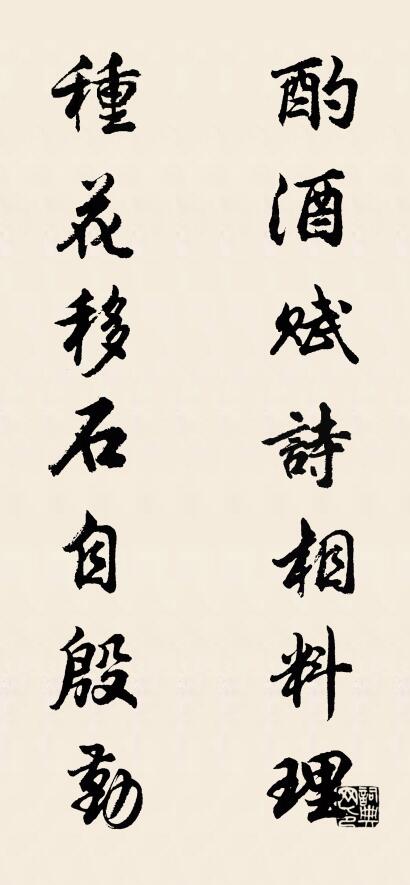 酌酒賦詩相料理
種花移石自殷勤
詞典網印